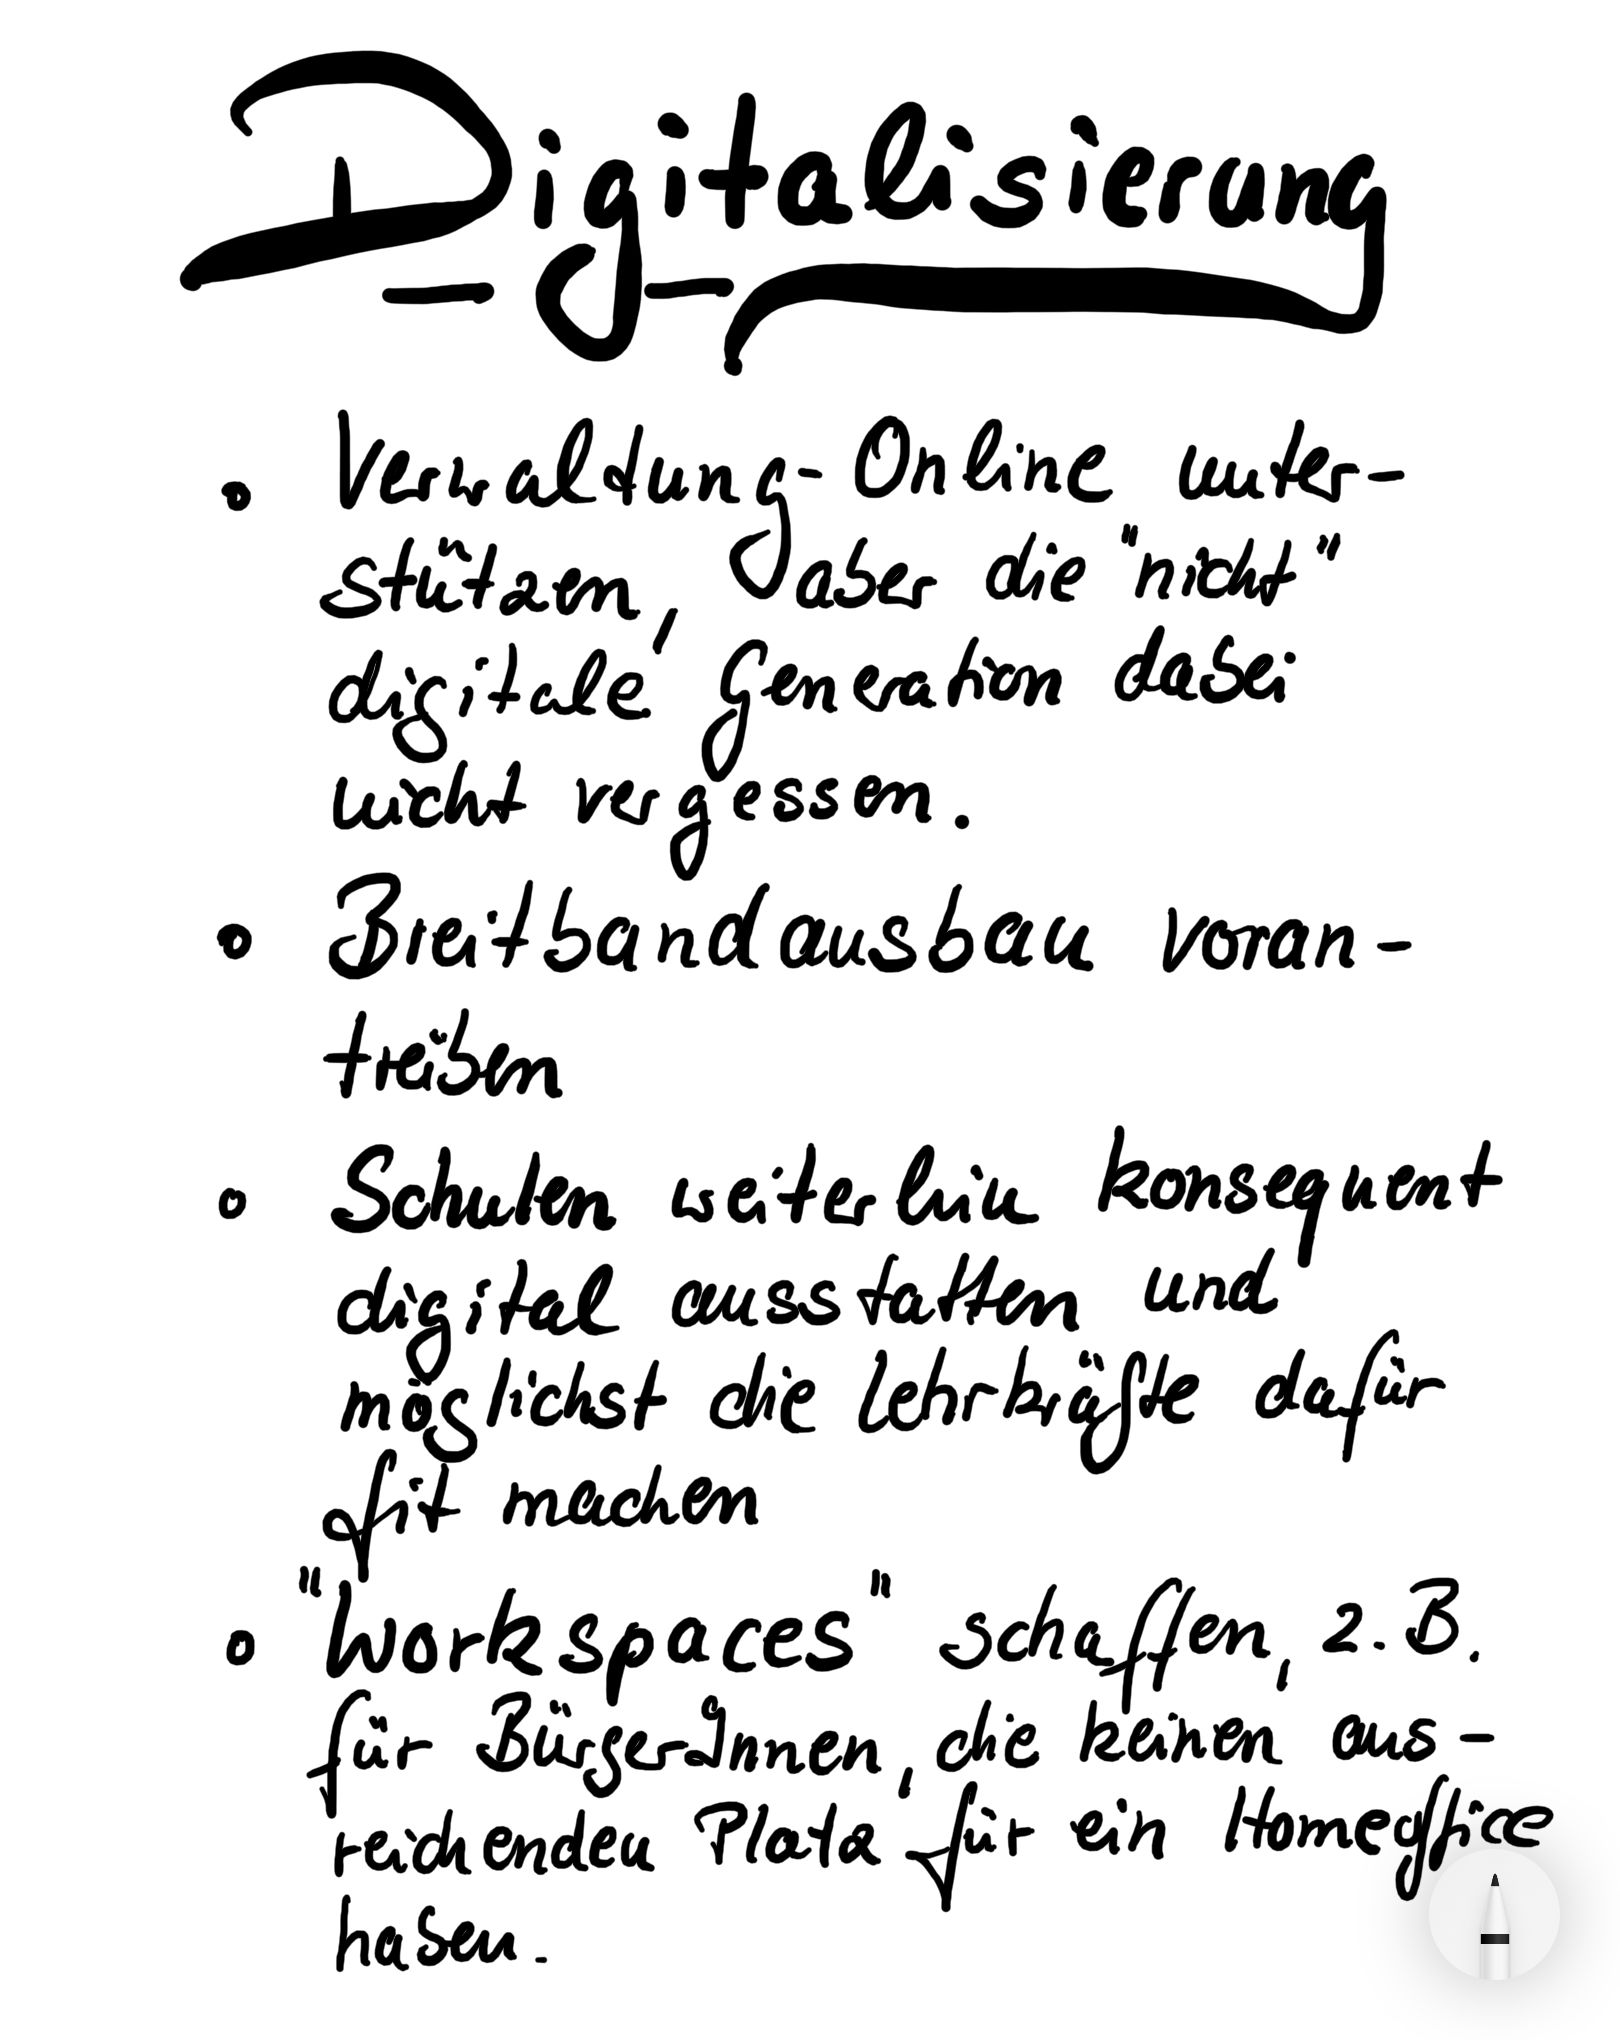 Digitalisierung
• Verwaltung-Online unter-
stützen, aber die "nicht"
digitale Generation dabei
nicht vergessen.
• Breitbandausbau voran-
treiben
• Schulen weiterhin konsequent
digital ausstatten und
möglichst die Lehrkräfte dafür
fit machen
• "Workspaces" schaffen, z.B.
für BürgerInnen, die keinen aus-
reichenden Platz für ein Homeoffice
haben.